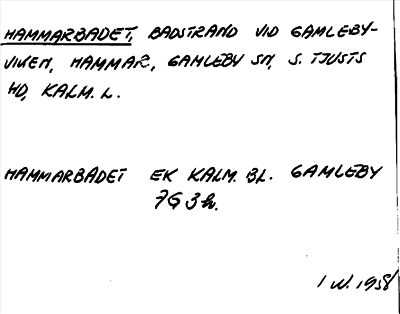 HAMMARBADET, BADSTRAND VID GAMLEBY-
VIKEN, HAMMAR, GAMLEBY SN, S. TJUSTS
HD, KALM. L.
HAMMARBADET EK KALM. BL. GAMLEBY
7G 3h.
1958